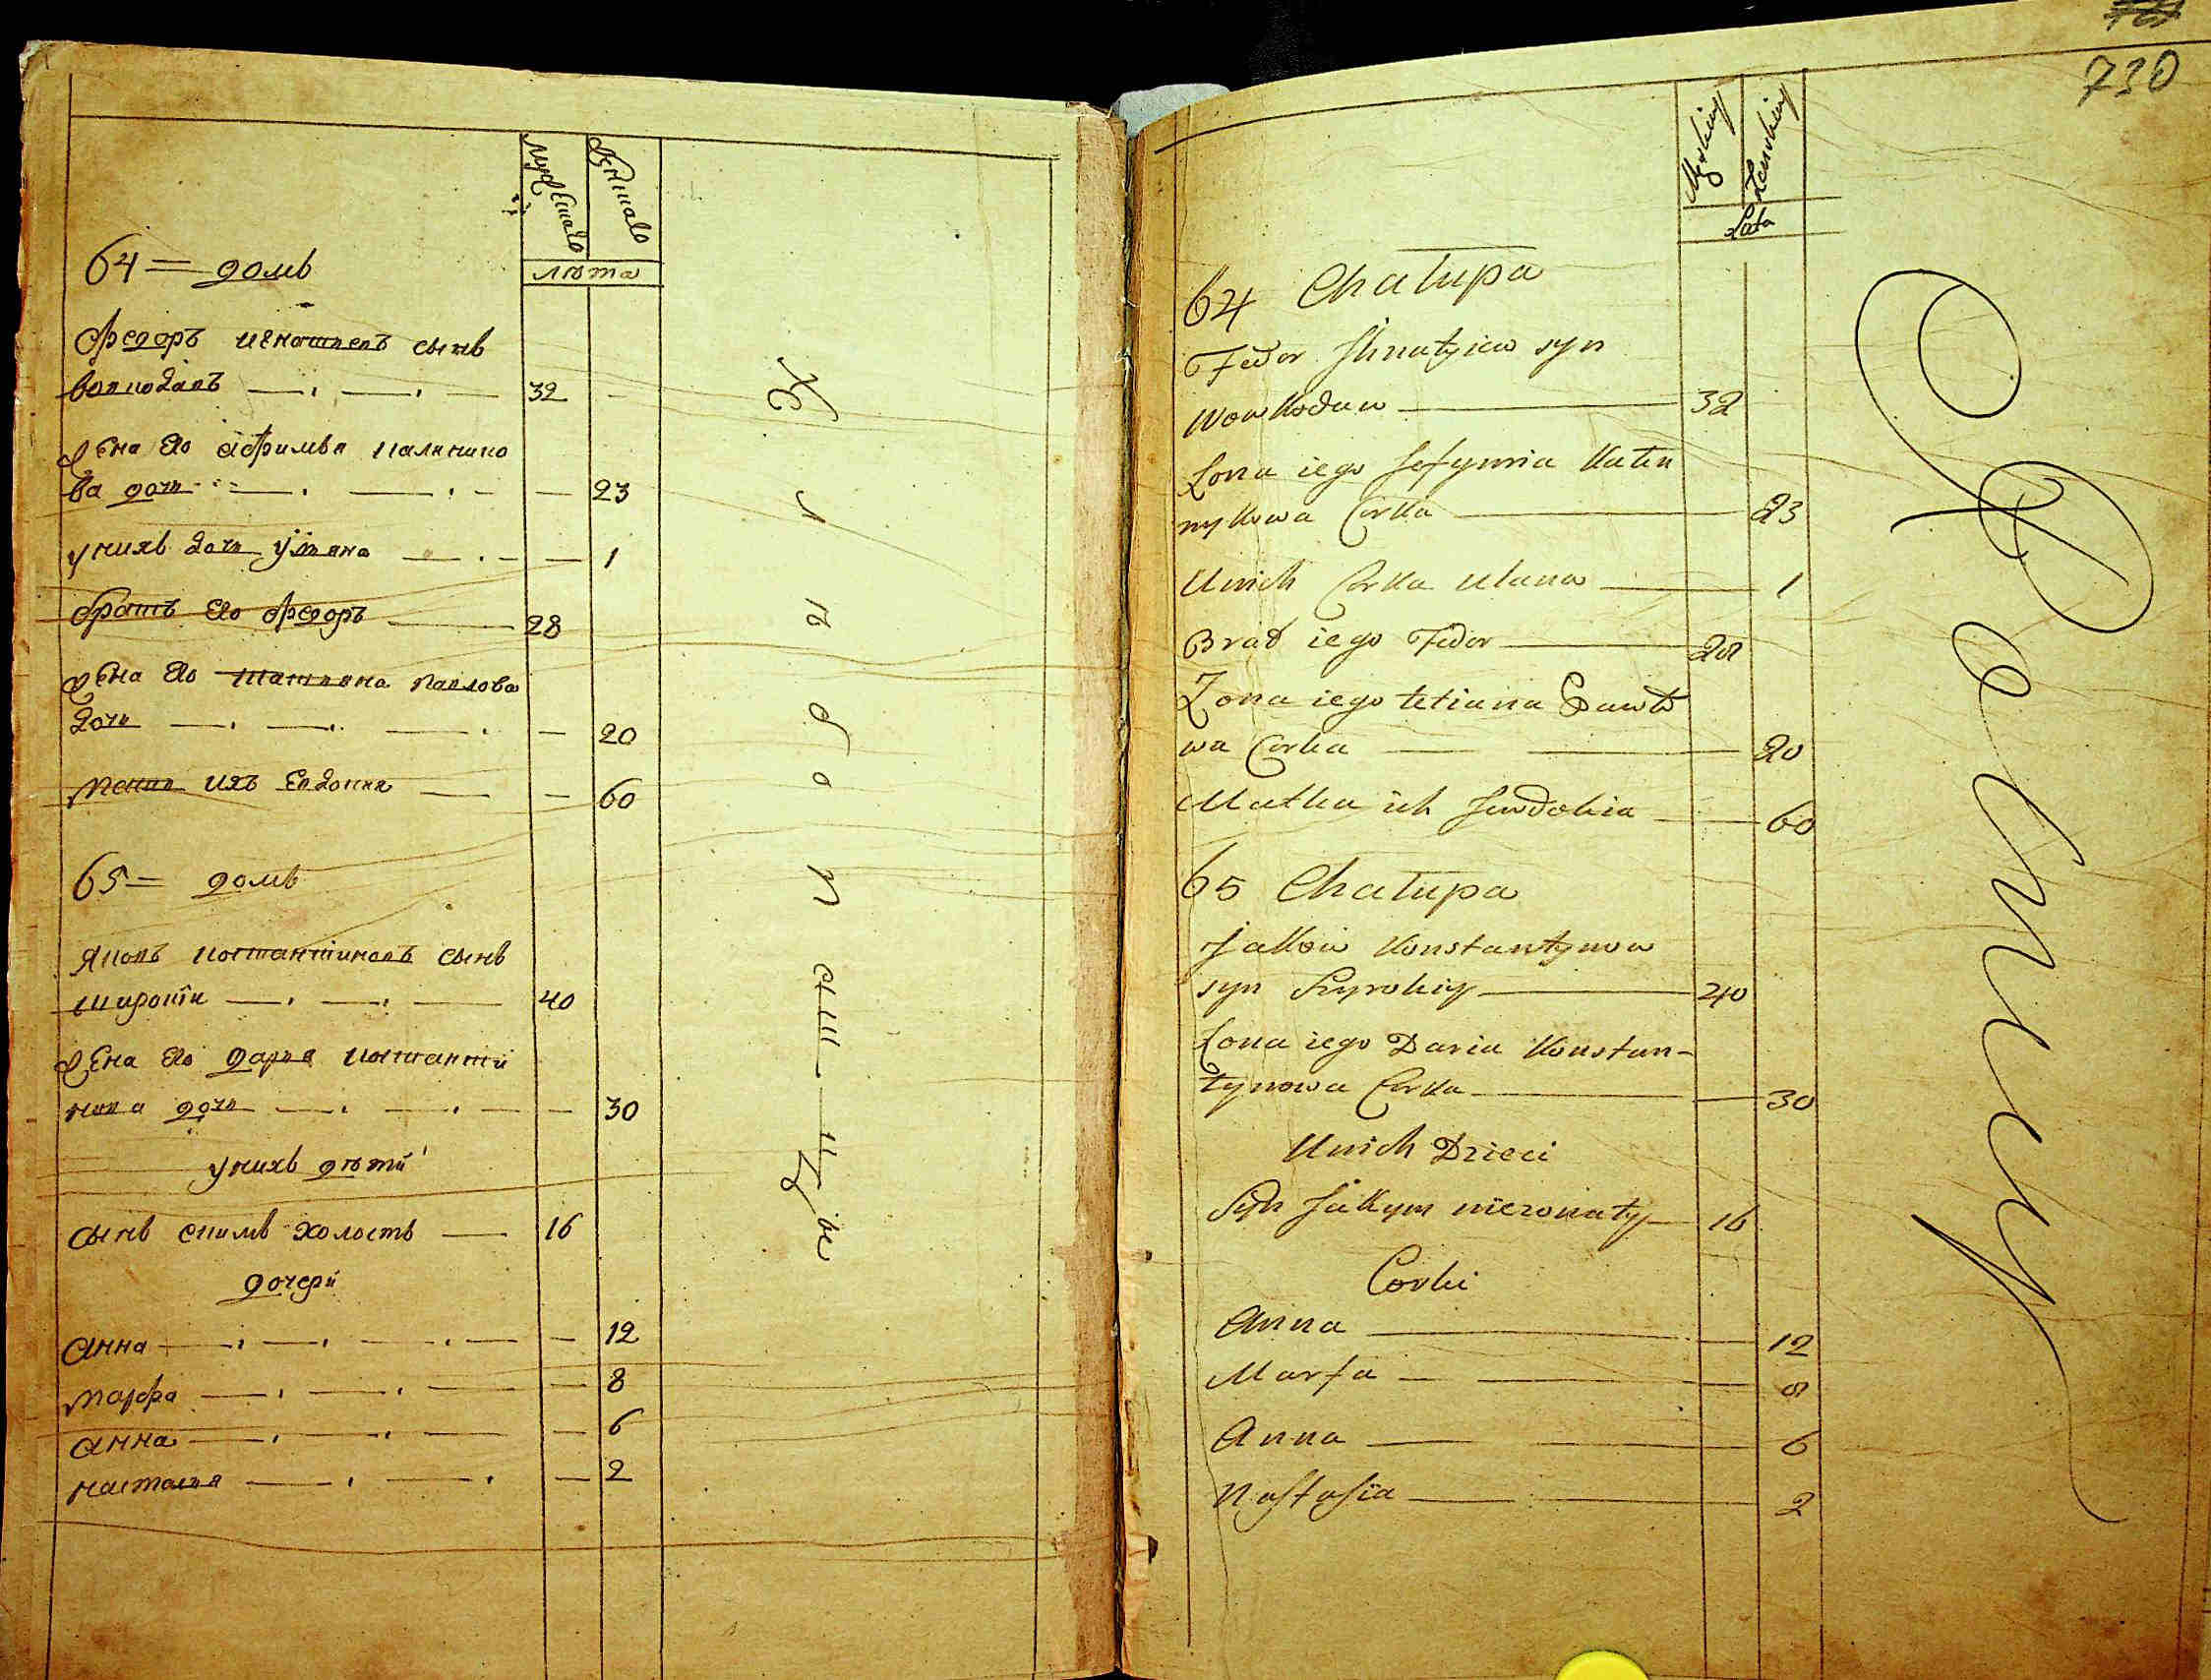 мужеска
женска
лѣта
64 = домъ
Федоръ игнатиевъ сынъ
вовкодавъ 32
жена его Ефимья калинико
ва дочь 23
у нихъ дочь уляна 1
братъ его Федоръ 28
жена его татияна павлова
дочь 20
матка ихъ Евдокия 60
65 = домъ
Яковъ костантиновъ сынъ
широкій 40
жена его дарья костанти
нова дочь 30
у нихъ дѣти
сынъ екимъ холостъ 16
дочери
Анна 12
марфа 8
Анна 6
настасия 2
730
Męskiey
Żenskiey
Lata
64 Chałupa
Fedor Ihnatyiew syn
Wowkodaw 32
Żona iego Jefymia Kalen
nykowa Corka 23
Unich Corka Ulana 1
Brat iego Fedor 28
Żona iego tetiana Pawło
wa Corka 20
Matka ich Jewdokia 60
65 Chałupa
Jakow Konstantynow
syn Szyrokiy 40
Żona iego Daria Konstan-
tynowa Corka 30
Unich Dzieci
Syn Jakym nieżonaty 16
Corki
Anna 12
Marfa 8
Anna 6
Nastasia 2